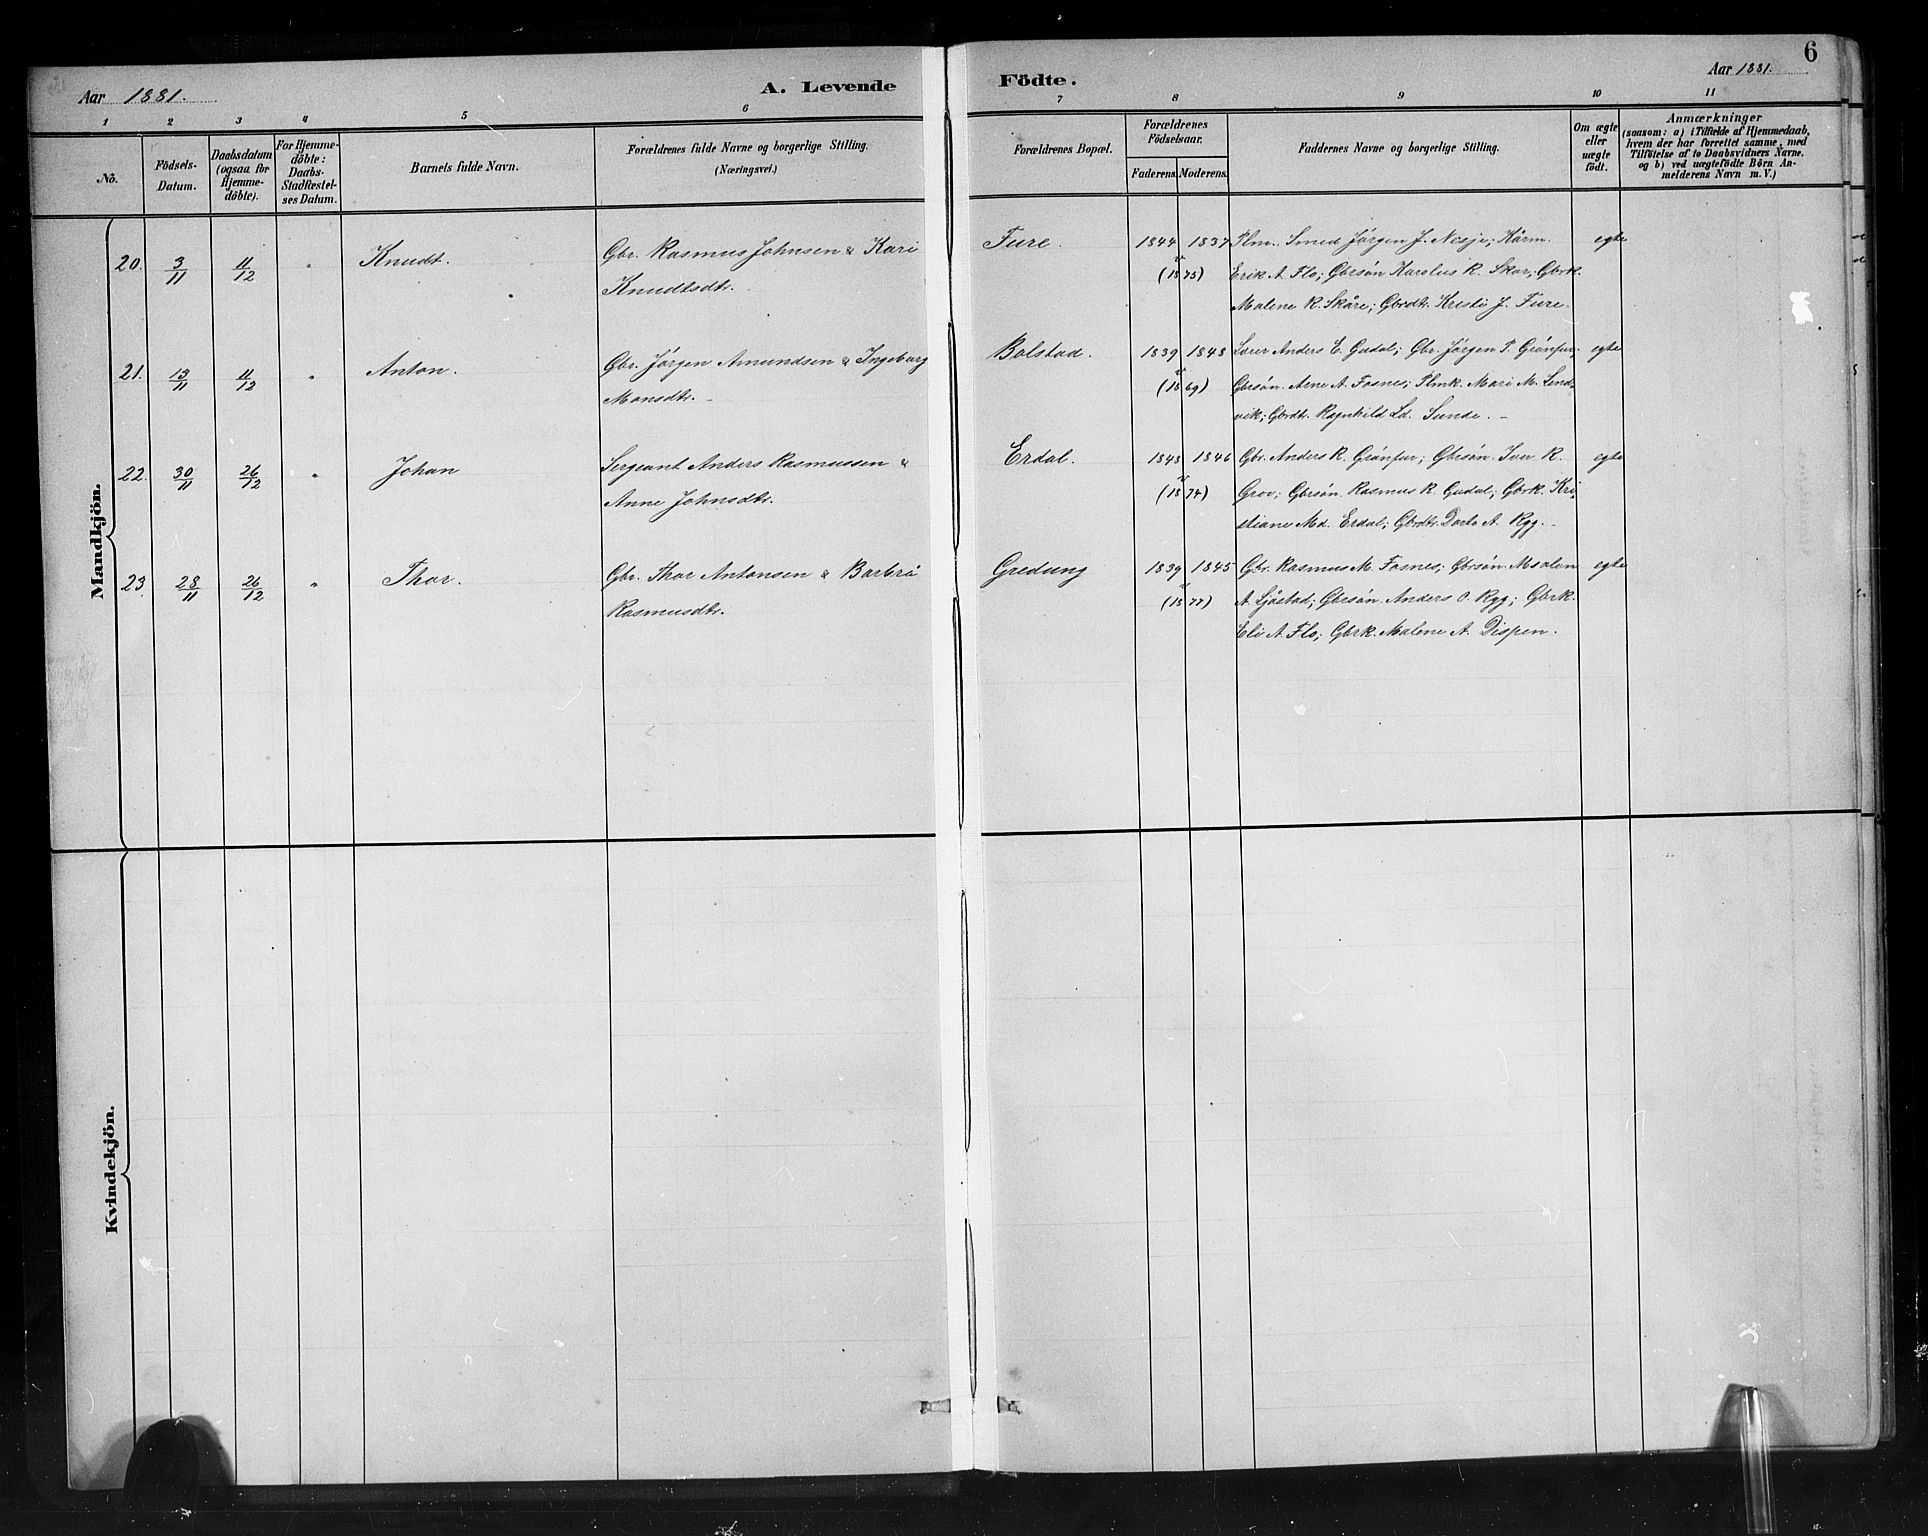 6
Aar 1881.
A. Levende
Födte.
Aar 1881.
1 2 3 4 5 6 7 8 9 10 11
No.
Födsels-
Datum.
Daabsdatum
(ogsaa for
Hjemme-
döbte).
For Hjemme-
döbte:
Daabs-
Stadfæstel-
ses Datum.
Barnets fulde Navn.
Forældrenes fulde Navne og borgerlige Stilling.
(Næringsvei.)
Forældrenes Bopæl.
Forældrenes
Födselsaar.
Faderens.
Moderens.
Faddernes Navne og borgerlige Stilling.
Om ægte
eller
uægte
födt.
Anmærkninger
(saasom: a) i Tilfælde af Hjemmedaab,
hvem der har forrettet samme, med
Tilföielse af to Daabsvidners Navne.
og b) ved uægtefödte Börn An-
melderens Navn m. V.)
Mandkjön.
20. 3/11 11/12 " Knudt. Gbr. Rasmus Johnsen & Kari
Knudtsdtr.
Fure. 1844 1837
(18 75)
Plm. Smed Jørgen J. Nesje; Kårm.
Erik A. Flo; Gbrsøn Karolus R. Skar; Gbrk.
Malene R. Skåre; Gbrdtr. Kristi J. Fure.
egte
21. 13/11 11/12 " Anton. Gbr. Jørgen Amundsen & Ingeborg
Monsdtr.
Bolstad. 1839 1848
(18 69)
Lærer Anders E. Gudal; Gbr. Jørgen P. Grønfur
Gbrsøn. Arne A. Fosnes; Plmk. Mari M. Lend-
vik; Gbrdtr. Ragnhild Ld. Sunde.
egte
22. 30/11 26/12 " Johan Sergeant Anders Rasmussen &
Anne Johnsdtr.
Erdal. 1848 1846
(18 74)
Gbr. Anders R. Grønfur; Gbrsøn. Iver R.
Grov; Gbrsøn. Rasmus R. Gudal; Gbrk. Kri-
stiane Md. Erdal; Gbrdtr. Dorte A. Rygg.
egte
23. 28/11 26/12 " Thor. Gbr. Thor Antonsen & Barbro
Rasmusdtr.
Gredung 1839 1845
(18 77)
Gbr. Rasmus M. Fosnes; Gbrsøn.
A. Ljåstad; Gbrsøn. Anders O. Rygg; Gbrk.
Eli A. Flo; Gbrk. Malene A. Dispen.
egte
Kvindekjön.